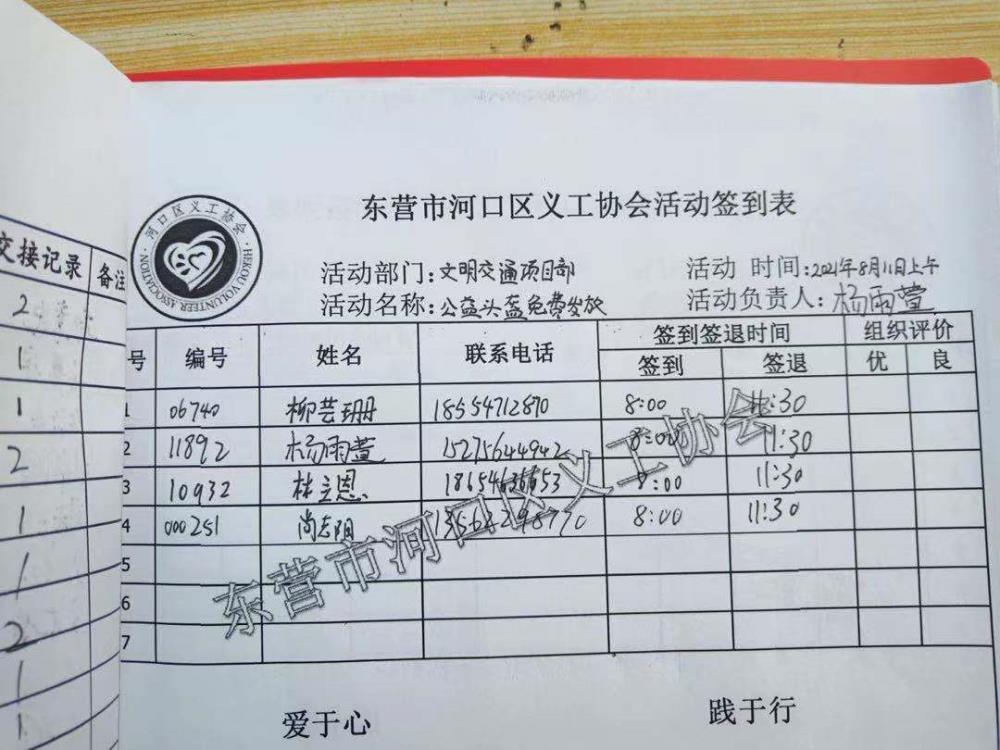 东营市河口区义工协会活动签到表
河口区义工协会
HEKOU VOLUNTEER ASSOCIATION
活动部门：文明交通项目部 活动 时间：2021年8月11日上午
活动名称：公益头盔免费发放 活动负责人：杨雨萱
交接记录 备注
号 编号 姓名 联系电话 签到签退时间 组织评价
签到 签退 优 良
1 06740 柳芸珊 18554712870 8:00 11:30
2 11892 杨雨萱 15275644942 8:00 11:30
3 10932 林立恩 18654636653 8:00 11:30
4 000251 尚志阴 8:00 11:30
5
6
7
2
1
1
2
1
1
2
1
1
东营市河口区义工协会
爱于心 践于行